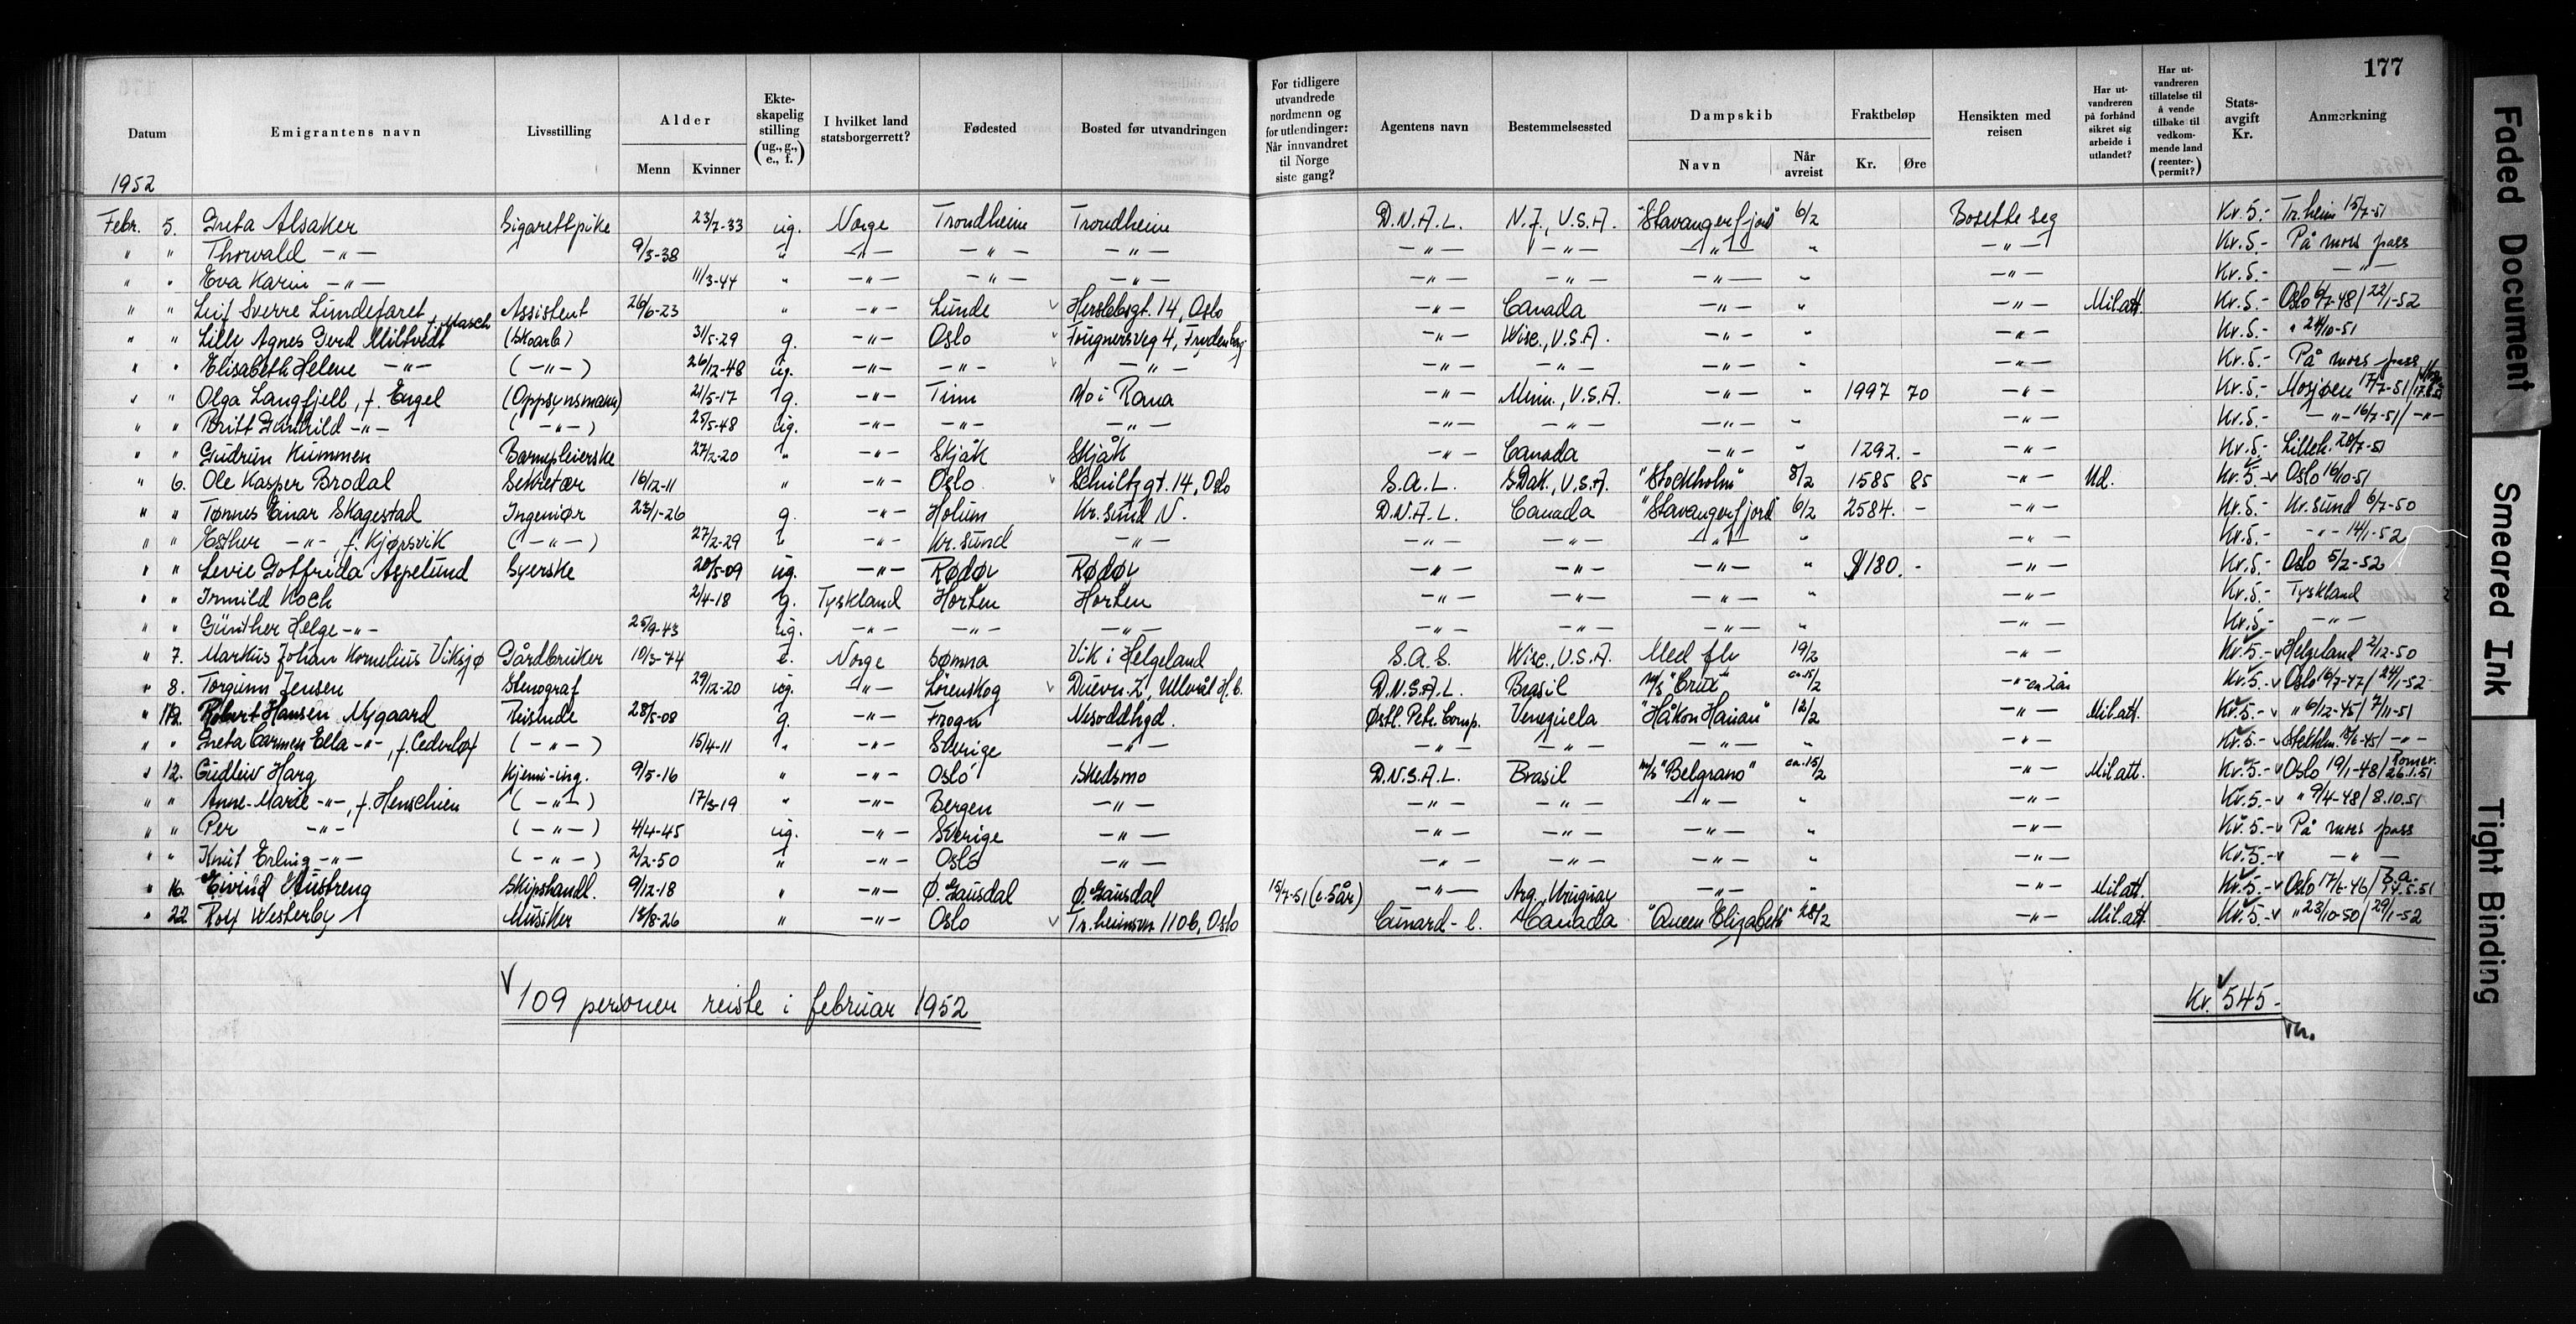 177
Datum | Emigrantens navn | Livsstilling | Alder Menn Kvinner | Ekte-skapelig stilling (ug., g., e., f.) | I hvilket land statsborgerrett? | Fødested | Bosted før utvandringen | For tidligere utvandrede nordmenn og for utlendinger: Når innvandret til Norge siste gang? | Agentens navn | Bestemmelsessted | Dampskib Navn Når avreist | Fraktbeløp Kr. Øre | Hensikten med reisen | Har ut-vandreren på forhånd sikret sig arbeide i utlandet? | Har ut-vandreren tillatelse til å vende tilbake til vedkom-mende land (reenter-permit?) | Stats-avgift Kr. | Anmerkning
1952
Febr. 5. Greta Alsaker Sigarettpike 23/7-33 ug. Norge Trondheim Trondheim D.N.A.L. N.J., U.S.A. "Stavangerfjord" 6/2 Bosette seg Kr. 5.- Tr.heim 15/7-51
" " Thorvald -"- 9/3-38 " -"- -"- -"- -"- -"- -"- " -"- Kr. 5.- På mors pass
" " Eva Karin -"- 11/3-44 " -"- -"- -"- -"- -"- -"- " -"- Kr. 5.- -"-
" " Leif Sverre Lundefaret Assistent 26/6-23 " -"- Lunde Herslebsgt. 14, Oslo -"- Canada -"- " -"- Mil.att. Kr. 5.- Oslo 6/7-48/22/1-52
" " Lille Agnes Gerd Miltvedt, f. Masch (Skoarb) 31/5-29 g. -"- Oslo Fougnersveg 4, Frydenberg -"- Wisc., U.S.A. -"- -"- Kr. 5.- " 24/10-51
" " Elisabeth Helene -"- (-"-) 26/12-48 ug. -"- -"- -"- -"- -"- -"- " -"- Kr. 5.- På mors pass
" " Olga Langfjell, f. Engel (Oppsynsmann) 21/5-17 g. -"- Tinn Mo i Rana -"- Minn., U.S.A. -"- " 1997 70 -"- Kr. 5.- Mosjøen 17/7-51/
" " Britt Gunhild -"- (-"-) 25/5-48 ug. -"- -"- -"- -"- -"- -"- " -"- Kr. 5.- -"- 16/7-51/-"-
" " Gudrun Kummen Barnepleierske 27/2-20 " -"- Skjåk Skjåk -"- Canada -"- " 1292.- -"- Kr. 5.- Lilleh. 20/7-51
" 6. Ole Kasper Brodal Sekretær 16/12-11 " -"- Oslo Schultzgt. 14, Oslo S.A.L. S.Dak., U.S.A. "Stockholm" 8/2 1585 85 -"- Ud. Kr. 5.- Oslo 16/10-51
" " Tønnes Einar Skagestad Ingeniør 23/1-26 g. -"- Holum Kr.sund N. D.N.A.L. Canada "Stavangerfjord" 6/2 2584.- -"- Kr. 5.- Kr.sund 6/7-50
" " Esther -"-, f. Kjørsvik (-"-) 27/2-29 " -"- Kr.sund -"- -"- -"- -"- " -"- Kr. 5.- -"- 14/1-52
" " Levie Gotfrida Aspelund Syerske 20/5-09 ug. -"- Rødøy Rødøy -"- -"- -"- " $180.- -"- Kr. 5.- Oslo 5/2-52
" " Irmild Koch 2/4-18 g. Tyskland Horten Horten -"- -"- -"- " -"- Kr. 5.- Tyskland
" " Günther Helge -"- 25/9-43 ug. -"- -"- -"- -"- -"- -"- " -"- Kr. 5.- -"-
" 7. Markus Johan Kornelius Viksjø Gårdbruker 10/3-74 e. Norge Sømna Vik i Helgeland S.A.S. Wisc., U.S.A. Med fly 19/2 -"- Kr. 5.- Helgeland 2/12-50
" 8. Torgunn Jensen Stenograf 29/12-20 ug. -"- Lørenskog Duevn. 2, Ullevål H.b. D.N.S.A.L. Brasil m/s "Crux" ca. 15/2 -"- ca 2 år Kr. 5.- Oslo 16/7-47/24/1-52
" 12. Robert Hansen Nygaard Reisende 28/5-08 g. -"- Frogn Nesodd hgd. Østl. Petr. Comp. Venezuela "Håkon Hauan" 12/2 -"- Mil.att. Kr. 5.- " 6/12-45/7/11-51
" " Greta Carmen Ella -"-, f. Cederløf (-"-) 15/4-11 " -"- Sverige -"- -"- -"- -"- " -"- Kr. 5.- Stockholm. 18/6-45/-"-
" 12. Gudleiv Harg Kjemi-ing. 9/5-16 " -"- Oslo Skedsmo D.N.S.A.L. Brasil m/s "Belgrano" ca. 15/2 -"- Mil.att. Kr. 5.- Oslo 19/1-48/Romer. 26.1.51
" " Anne-Marie -"-, f. Henschien (-"-) 17/3-19 " -"- Bergen -"- -"- -"- -"- " -"- Kr. 5.- " 9/4-48/8.10.51
" " Per -"- (-"-) 4/4-45 ug. -"- Sverige -"- -"- -"- -"- " -"- Kr. 5.- På mors pass
" " Knut Erling -"- (-"-) 2/2-50 " -"- Oslo -"- -"- -"- -"- " -"- Kr. 5.- -"-
" 16. Eivind Austreng Skipshandl. 9/12-18 " -"- Ø. Gausdal Ø. Gausdal 15/7-51 (e. 5 år) -"- Arg., Uruguay -"- " -"- Mil.att. Kr. 5.- Oslo 17/6-46/B.a. 14.5.51
" 22 Rolf Westerby Musiker 18/8-26 " -"- Oslo Tr.heimsvn 110b, Oslo Cunard-l. Canada "Queen Elizabeth" 28/2 -"- Mil.att. Kr. 5.- " 23/10-50/29/1-52
109 personer reiste i februar 1952 Kr. 545.-
Faded Document
Smeared Ink
Tight Binding